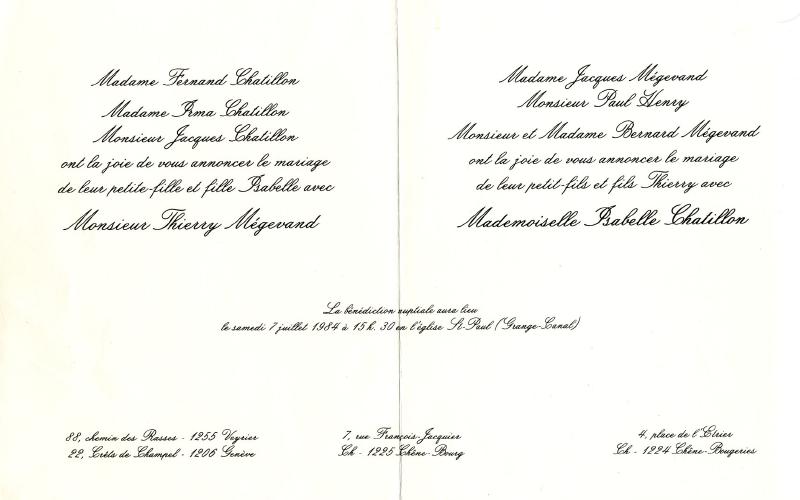 Madame Fernand Chatillon
Madame Irma Chatillon
Monsieur Jacques Chatillon
ont la joie de vous annoncer le mariage
de leur petite-fille et fille Isabelle avec
Monsieur Thierry Mégevand
Madame Jacques Mégevand
Monsieur Paul Henry
Monsieur et Madame Bernard Mégevand
ont la joie de vous annoncer le mariage
de leur petit-fils et fils Thierry avec
Mademoiselle Isabelle Chatillon
La bénédiction nuptiale aura lieu
le samedi 7 juillet 1984 à 15 h. 30 en l'église St-Paul (Grange-Canal)
88, chemin des Rasses - 1255 Veyrier
22, Crêts de Champel - 1206 Genève
7, rue François-Jacquier
Ch - 1225 Chêne-Bourg
4, place de l'Etrier
Ch - 1224 Chêne-Bougeries